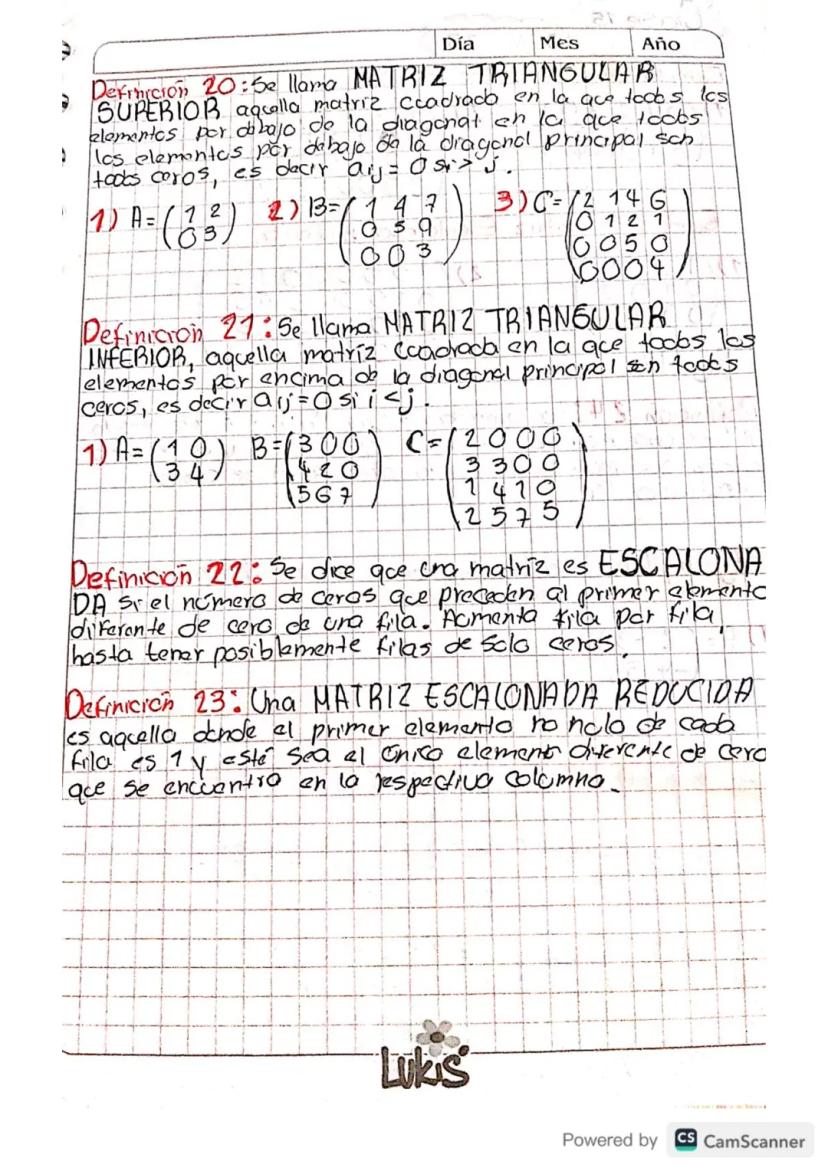 Día Mes Año
Definición 20: Se llama MATRIZ TRIANGULAR
SUPERIOR aquella matriz cuadrada en la que todos los
elementos por debajo de la diagonal en la que todos
los elementos por debajo de la diagonal principal son
todos ceros, es decir aij = 0 si > j.
1) A = (1 2 2) B = (1 4 7 3) C = (2 1 4 6
0 3) 0 5 9 0 1 2 1
0 0 3) 0 0 5 0
0 0 0 4)
Definición 21: Se llama MATRIZ TRIANGULAR
INFERIOR, aquella matriz cuadrada en la que todos los
elementos por encima de la diagonal principal son todos
ceros, es decir aij = 0 si i < j.
1) A = (1 0 B = (3 0 0 C = (2 0 0 0
3 4) 4 2 0 3 3 0 0
5 6 7) 1 4 1 0
2 5 7 5)
Definición 22: Se dice que una matriz es ESCALONA
DA si el número de ceros que preceden al primer elemento
diferente de cero de una fila. Aumenta fila por fila,
hasta tener posiblemente filas de solo ceros.
Definición 23: Una MATRIZ ESCALONADA REDUCIDA
es aquella donde el primer elemento no nulo de cada
fila es 1 y esté sea el único elemento diferente de cero
que se encuentra en la respectiva columna.
Lukis
Powered by CS CamScanner